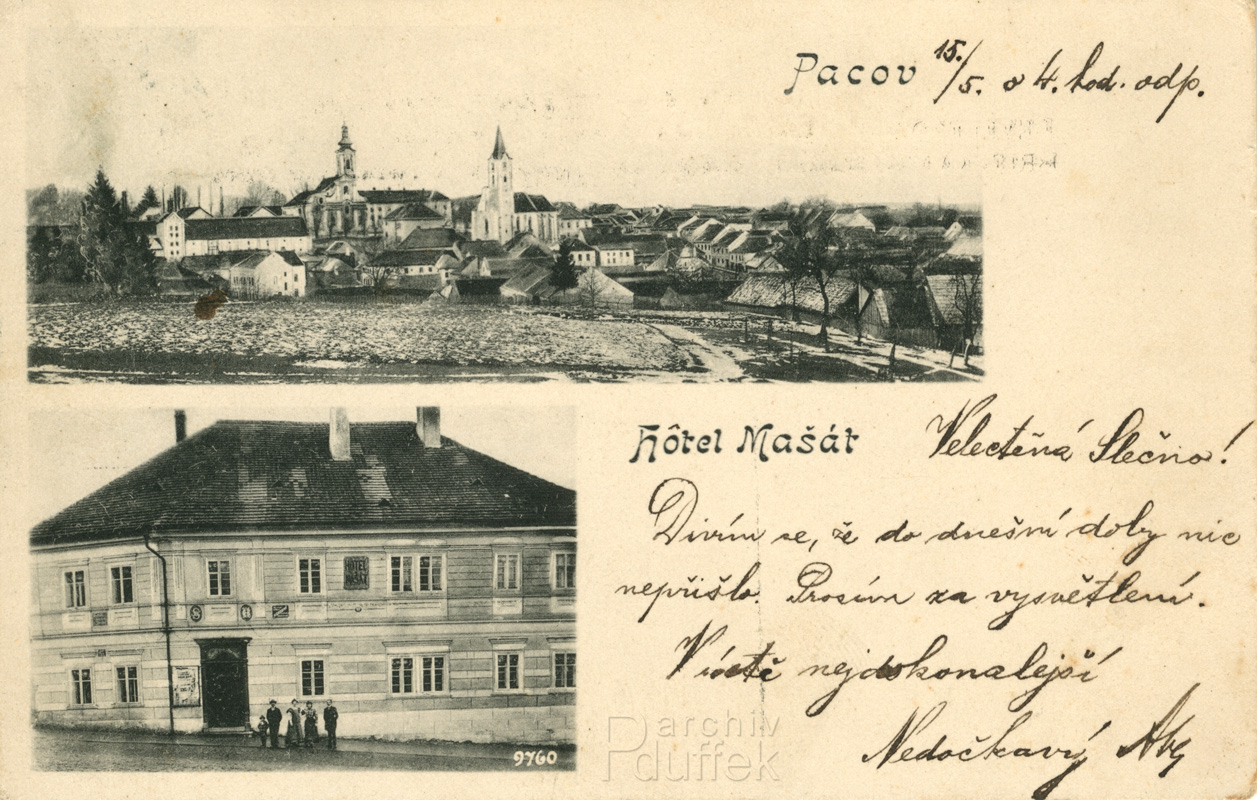 Pacov 15./5. o 4. hod. odp.
Hôtel Mašát Velectěná Slečno!
Divím se, že do dnešní doby nic
nepřišlo. Prosím za vysvětlení.
nejdokonalejší
Nedočkavý
HÔTEL
MAŠÁT
9760
archiv
Pduffek